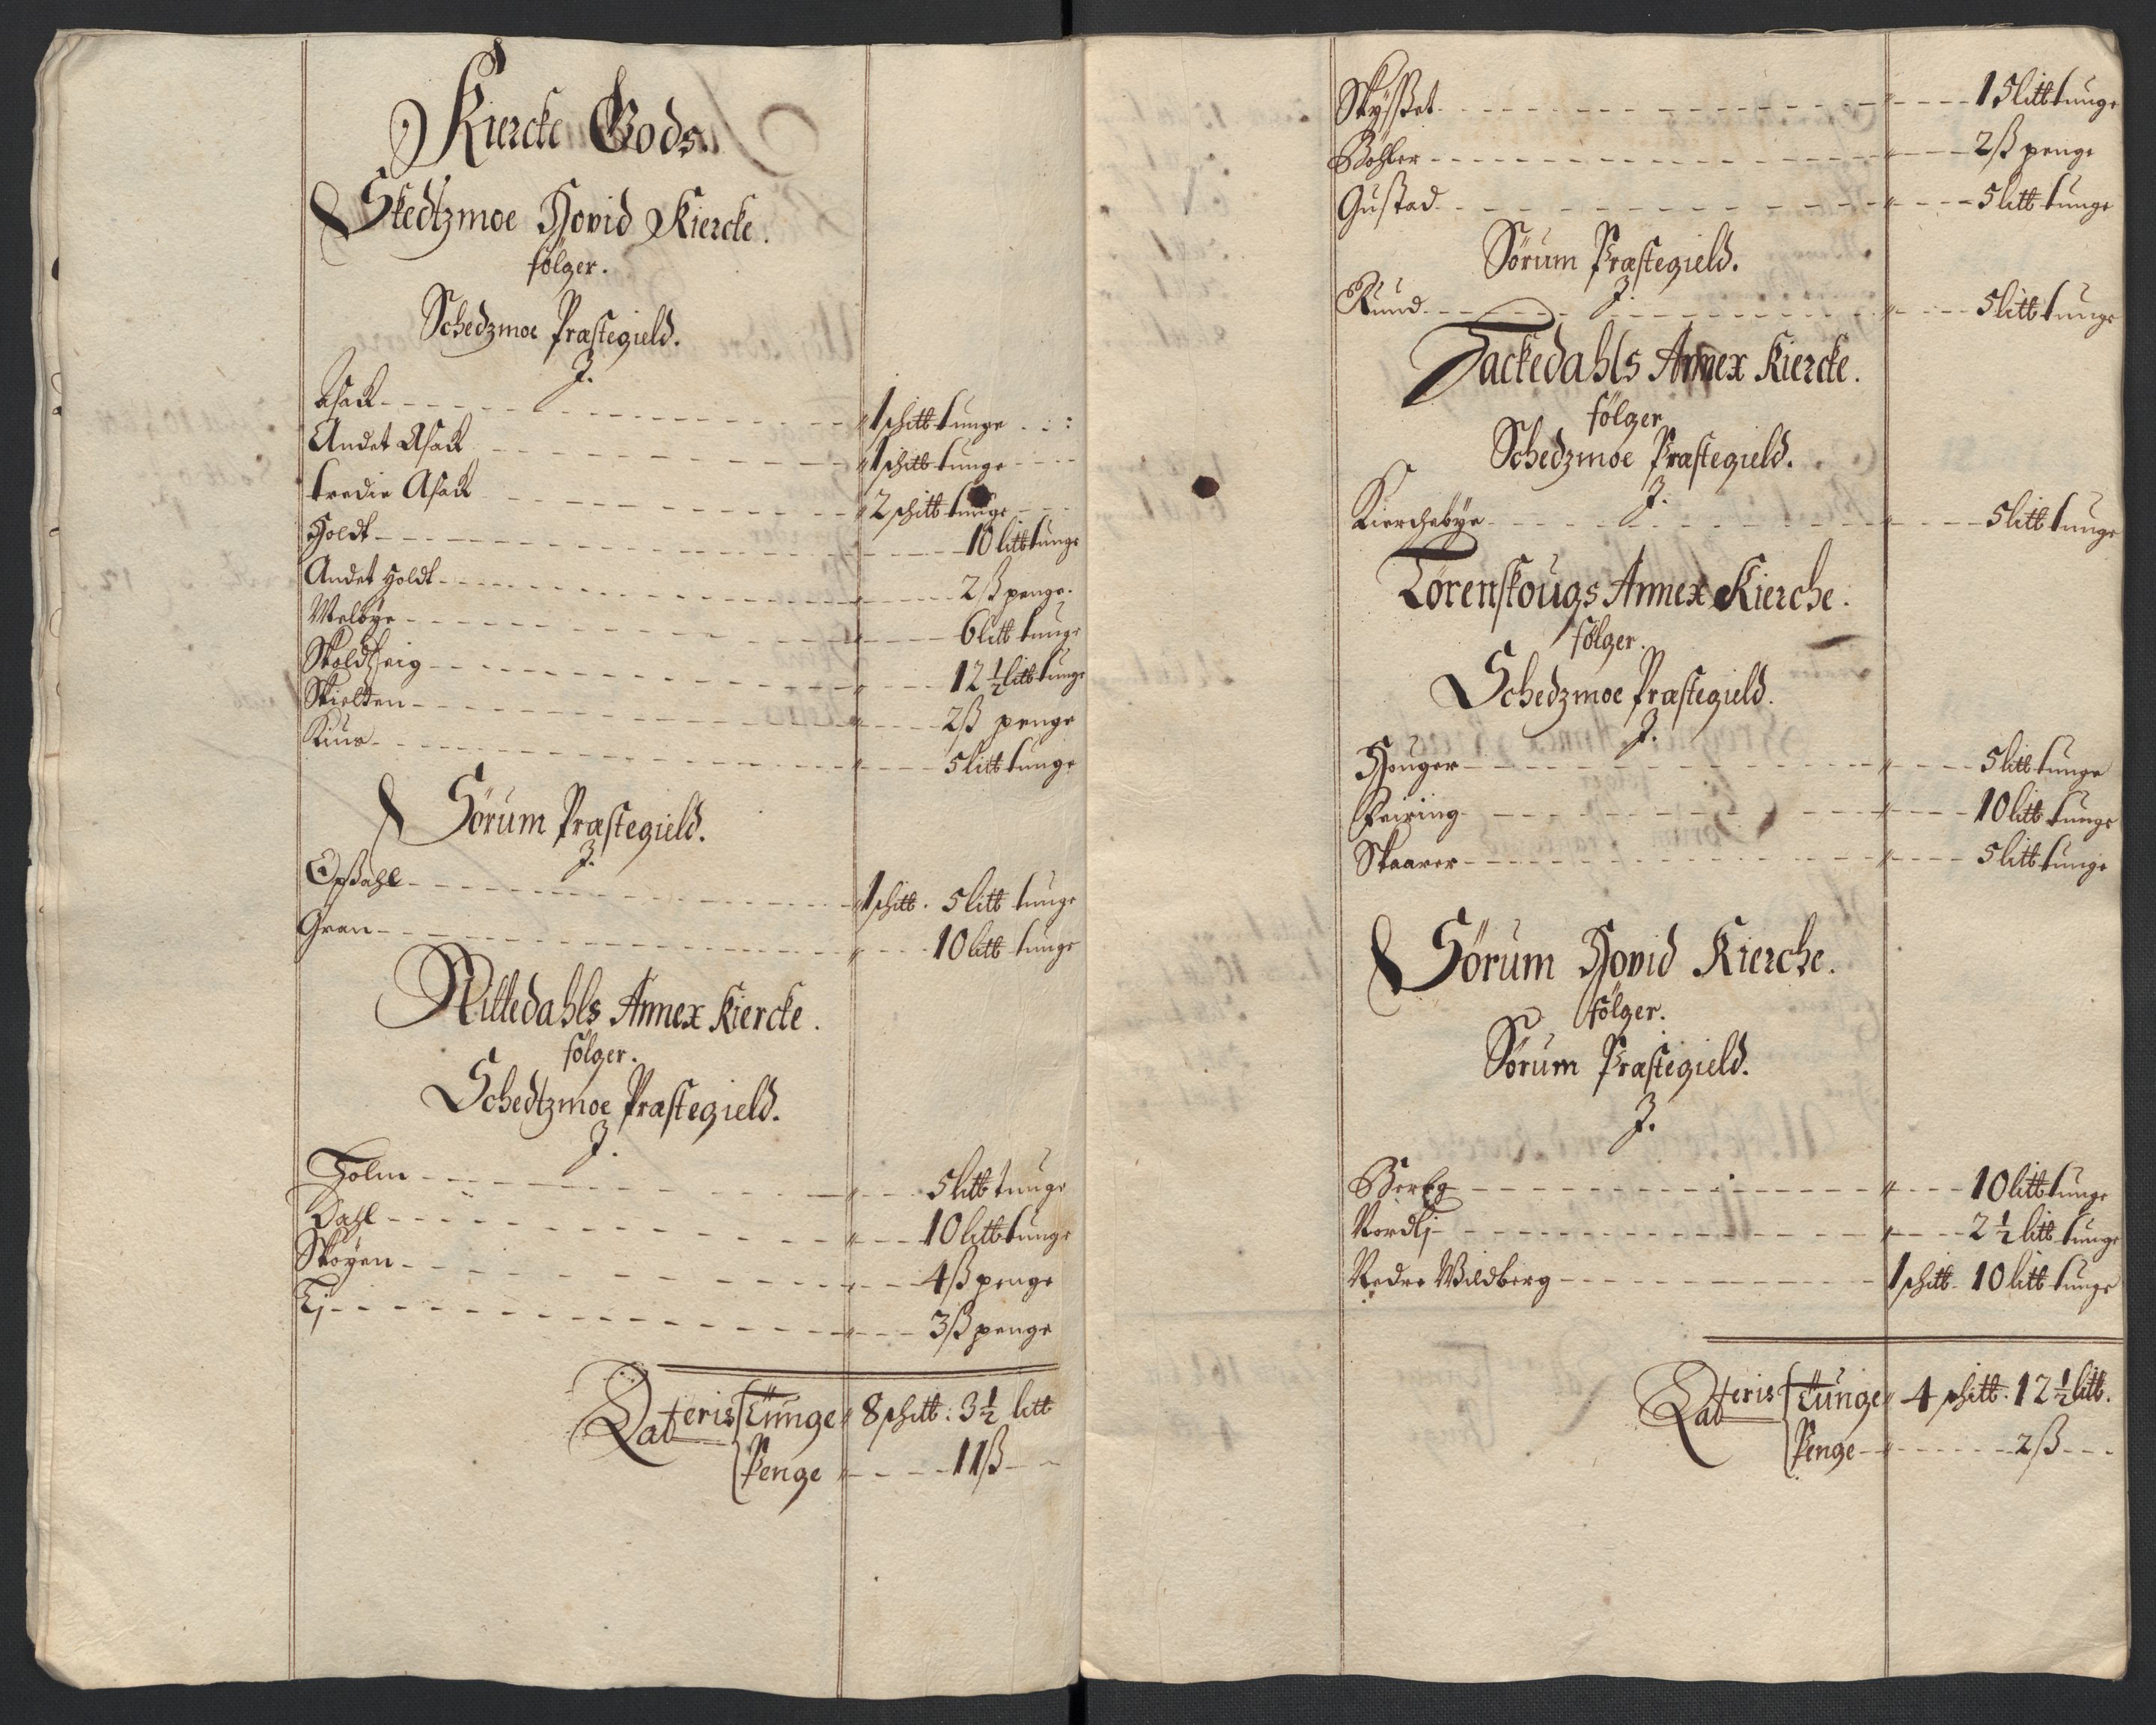 Kiercke Gods.
Skedtzmoe Hovid Kiercke.
følger.
Schedzmoe Præstegield.
J.
Asack - - - 1 schitt tunge
Andet Asack - - - 1 schitt tunge
tredie Asack - - - 2 schitt tunge
Holdt - - - 10 litt tunge
Andet Holdt - - - 2 ß penge.
Melbye - - - 6 litt tunge
Skoldtzeig - - - 12 ½ litt tunge
Skielsten - - - 2 ß penge
Kiuus - - - 5 litt tunge
Sørum Præstegield.
J.
Opsahl - - - 1 schitt. 5 litt tunge
Gran - - - 10 litt tunge
Nittedahls Annex Kiercke.
følger.
Schedtzmoe Præstegield.
J.
Holm - - - 5 litt tunge
Dahl - - - 10 litt tunge
Skøyen - - - 4 ß penge
Lj - - - 3 ß penge
Lateris Tunge 8 schitt: 3 ½ litt
Penge - - - 11 ß
Skysset - - - 15 litt tunge
Bøhler - - - 2 ß penge
Gustad - - - 5 litt tunge
Sørum Præstegield.
J.
Rund - - - 5 litt tunge
Hackedahls Annex Kiercke.
følger
Schedzmoe Præstegield.
J.
Kierchebye - - - 5 litt tunge
Lørenskougs Annex Kierche.
følger.
Schedzmoe Præstegield.
J.
Houger - - - 5 litt tunge
Feiring - - - 10 litt tunge
Skaarer - - - 5 litt tunge
Sørum Hovid Kierche.
følger.
Sørum Præstegield.
J.
Berbg - - - 10 litt tunge
Nordlj - - - 2 ½ litt tunge
Nedre Wildberg - - - 1 schitt. 10 litt tunge
Lateris Tunge 4 schitt. 12 ½ litt.
Penge - - - 2 ß